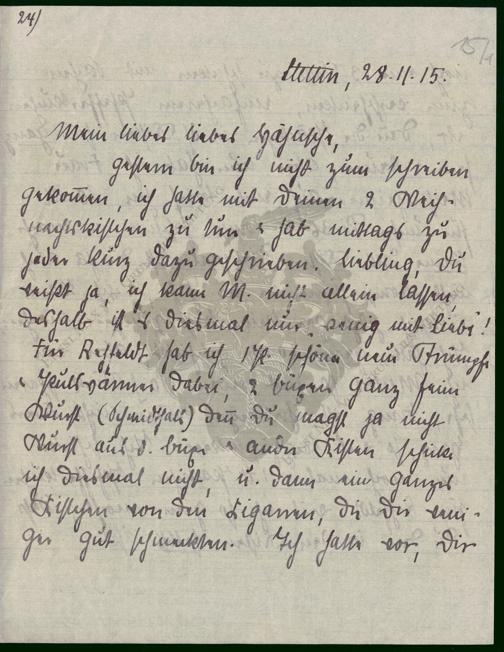 24)
15/1
Stettin, 28.11.15.
Mein liebes liebes
gestern bin ich nicht zum schreiben
gekommen, ich hatte mit deinen 2 Weih-
nachtskistchen zu tun & hab mittags zu
jeder kurz dazu geschrieben. Liebling, Du
weißt ja, ich kann M. nicht allein lassen,
deshalb ist es diesmal nur wenig mit Liebe!
Für hab ich 1 P. schöne neue Strümpfe
& Pulswärmer dabei, 2 büxen ganz feine
Wurst (Schmidthals) denn Du magst ja nicht
Wurst aus d. büxe & andre Kisten schicke
ich diesmal nicht, u. dann ein ganzes
Kistchen von den Zigarren, die Dir weni-
ger gut schmeckten. Ich hatte vor, Dir